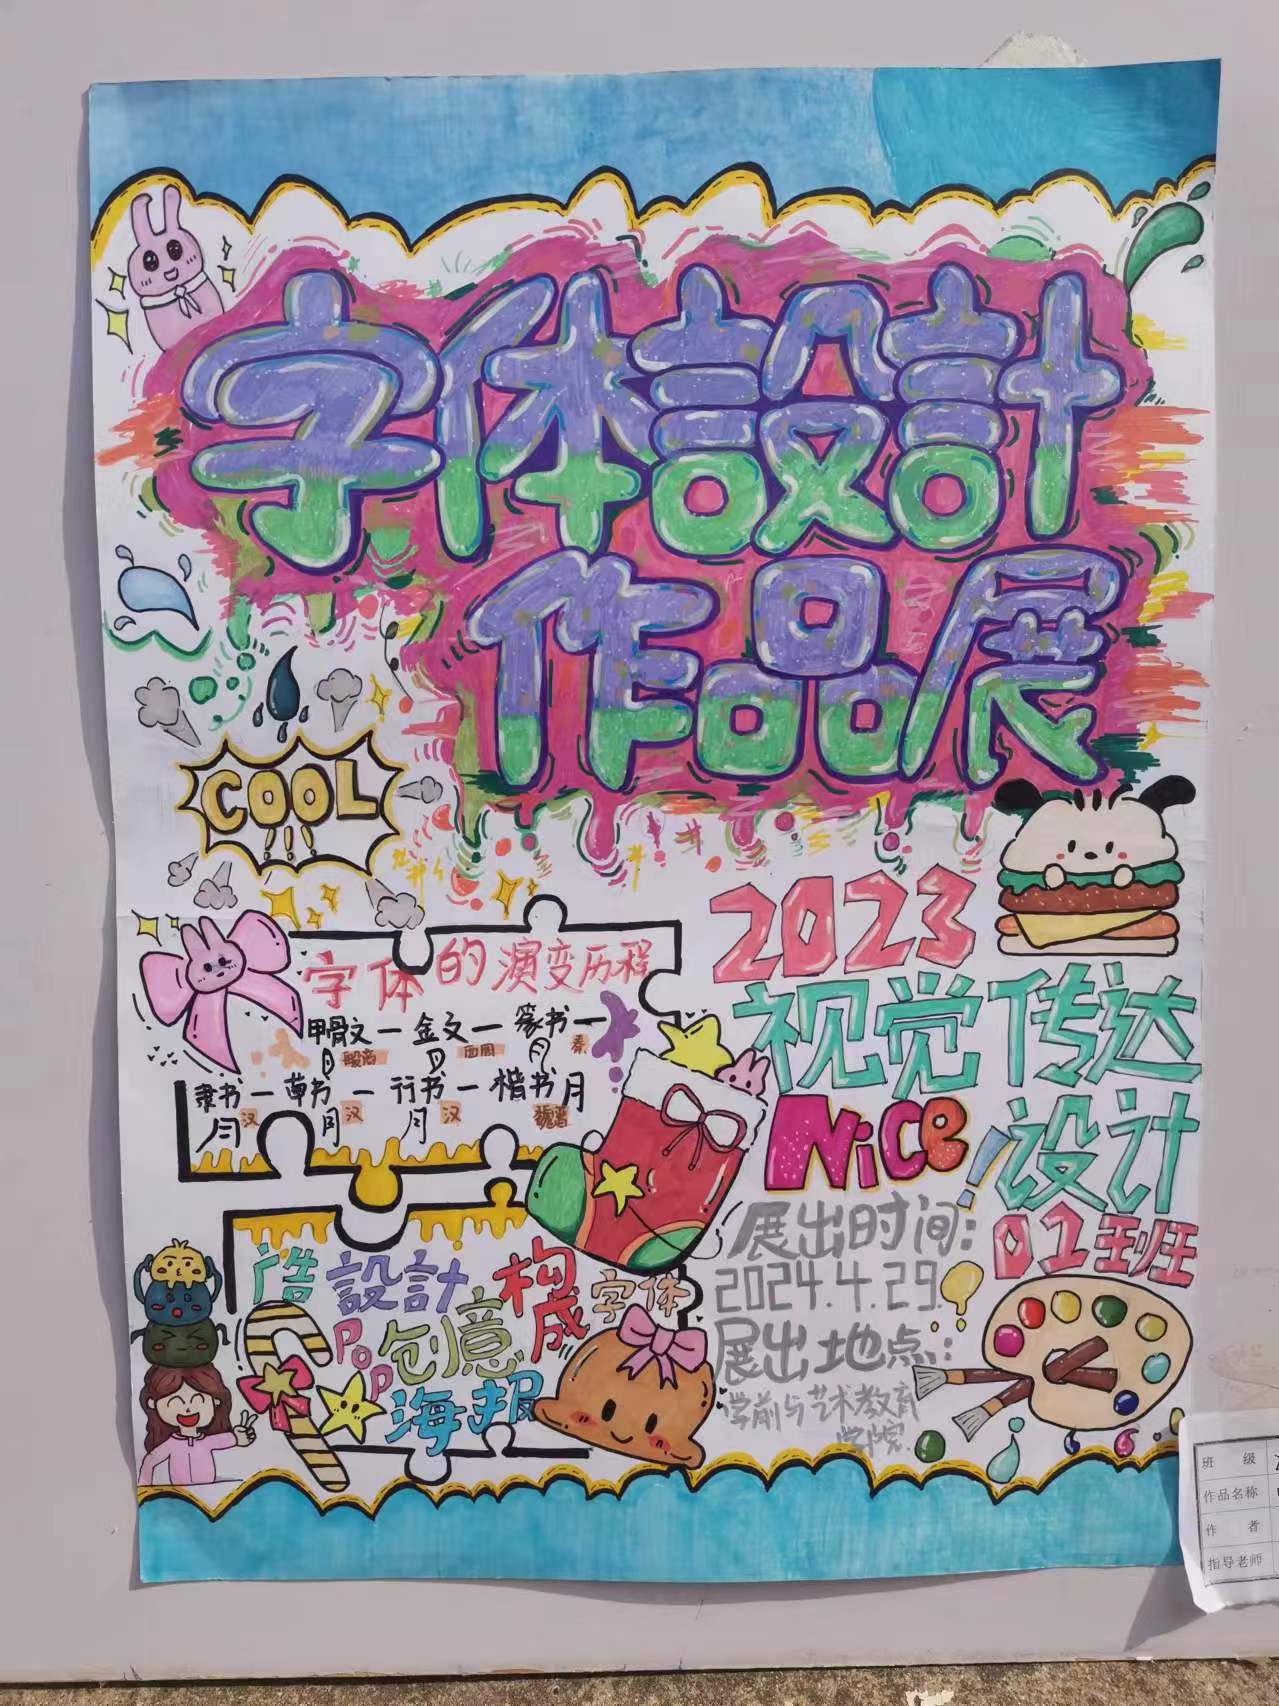 字体設計
作品展
COOL
!!!
字体的演变历程
甲骨文一金文一篆书一
殷商
西周
秦
隶书一草书一行书一楷书
汉
汉
汉
魏晋
广告設計构成字体
POP创意
海报
2023
视觉传达
Nice!设计
01班
展出时间:
2024.4.29.
展出地点:
学前与艺术教育
学院
班 级
作品名称
作 者
指导老师